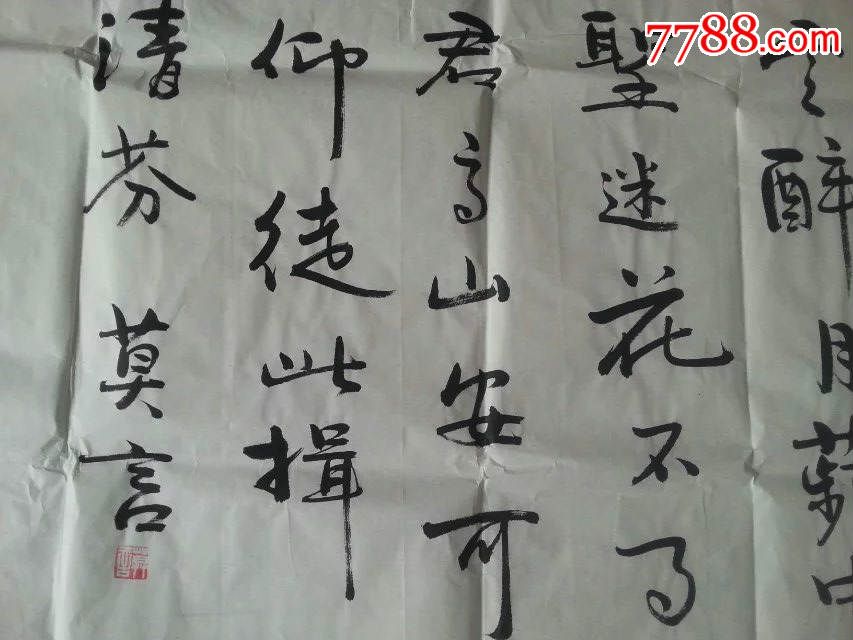 7788.com
醉月
聖迷花不事
君高山安可
仰徒此揖
清芬 莫言